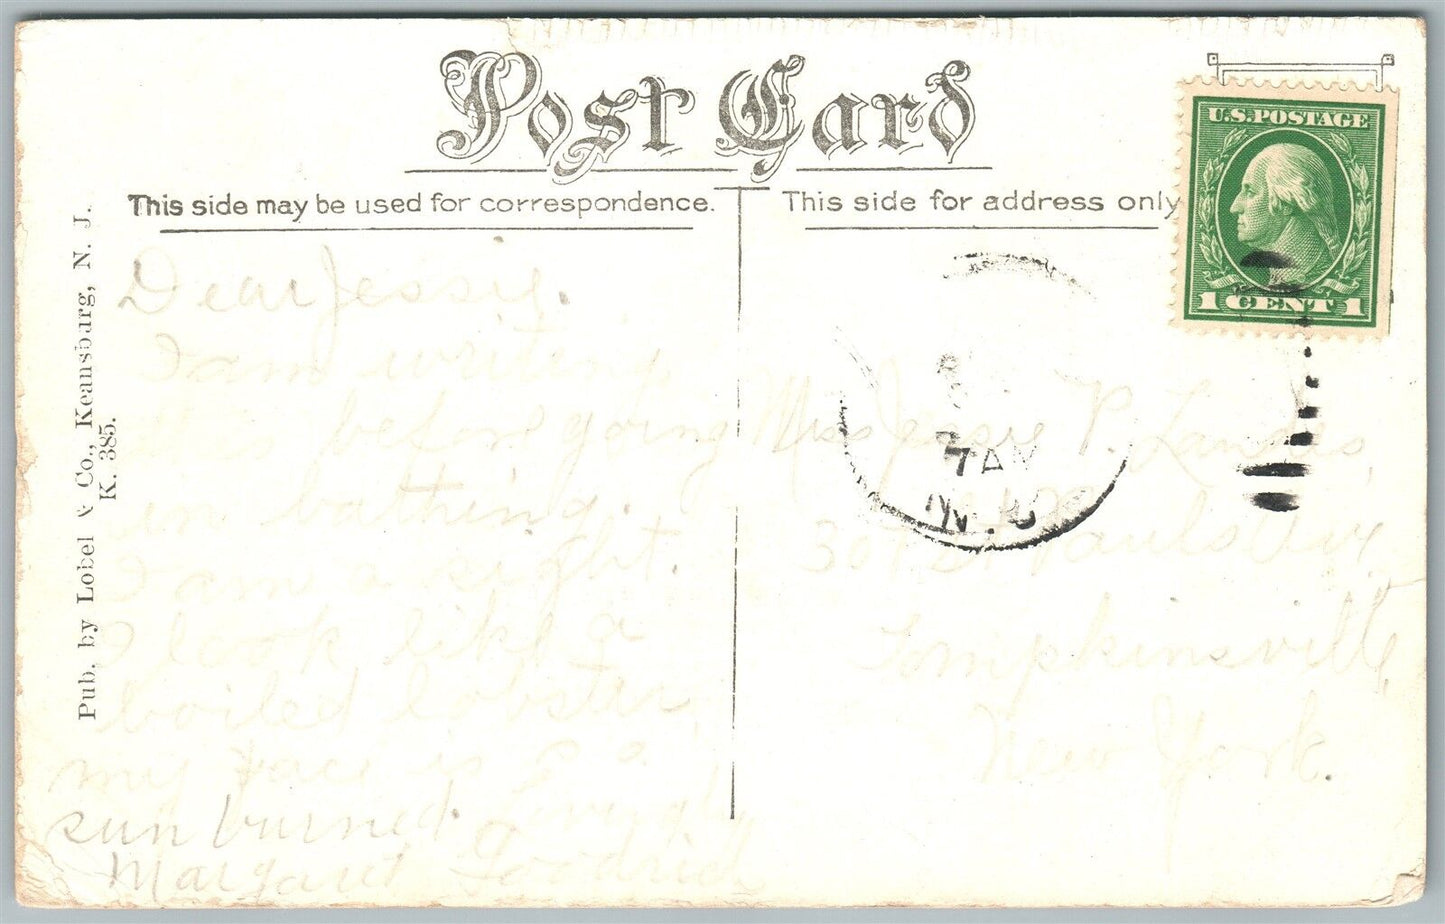 Post Card
This side may be used for correspondence.
This side for address only
U.S. POSTAGE
1 CENT 1
Pub. by Lobel & Co., Keansburg, N. J.
K. 385.
7 AM
N.J.
Dear Jessie.
I am writing
this before going
in bathing.
I am a sight.
I look like a
boiled lobster,
my face is so
sun burned. Lovingly
Margaret Goodrich
Miss Jessie P. Landis,
307 St Pauls Ave
Tompkinsville
New York.